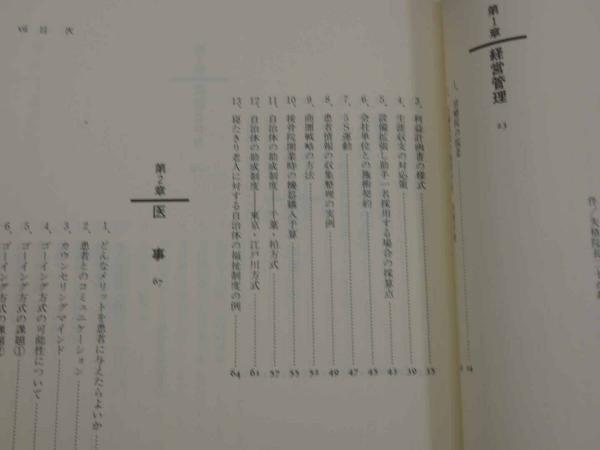 第1章 経営管理 23
3、利益計画書の様式 35
4、生涯収支の対応策 39
5、設備拡張し助手一名採用する場合の採算点 41
6、会社単位との施術契約 43
7、5S運動 47
8、患者情報の収集整理の実例 49
9、商圏戦略の方法 52
10、接骨院開業時の機器購入予算 55
11、自治体の助成制度――千葉・柏方式 57
12、自治体の助成制度――東京・江戸川方式 61
13、寝たきり老人に対する自治体の福祉制度の例 64
第2章 医事 67
1、どんなメリットを患者に与えたらよいか
2、患者とのコミュニケーション
3、カウンセリングマインド
4、ゴーイング方式の可能性について
5、ゴーイング方式の課題①
6、ゴーイング方式の課題②
vii 目次